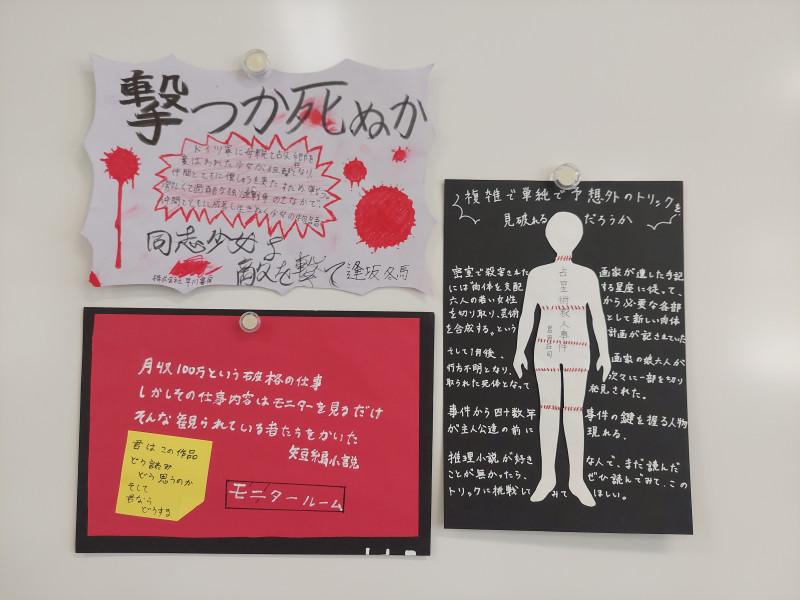 撃つか死ぬか
ドイツ軍に母親と故郷を
奪はわれた少女が狙撃兵となり、
仲間とともに復しゅうを果たすため、戦う。
仲間とともに成長し生きぬく少女の物語
同志少女よ
敵を撃て 逢坂冬馬
株式会社 早川書房
月収100万という破格の仕事
しかしその仕事内容はモニターを見るだけ
そんな観られている者たちをかいた
短編小説
モニタールーム
君はこの作品
どう読み
どう思うのか
そして
君なら
どうする
複雑で単純で予想外のトリックを
見破れるだろうか
占星術殺人事件
島田荘司
密室で殺害された画家が遺した手記
には肉体を支配する星座に従って、
六人の若い女性から必要な各部
を切り取り、芸術として新しい肉体
を合成する。という計画が記されていた
そして1月後、画家の娘六人が
行方不明となり、次々に一部を切り
取られた死体となって発見された。
事件から四十数年 事件の鍵を握る人物
が主人公達の前に現れる。
推理小説が好きなんで、まだ読んだ
ことが無かったら、ぜひ読んでみて、この
トリックに挑戦してみてほしい。